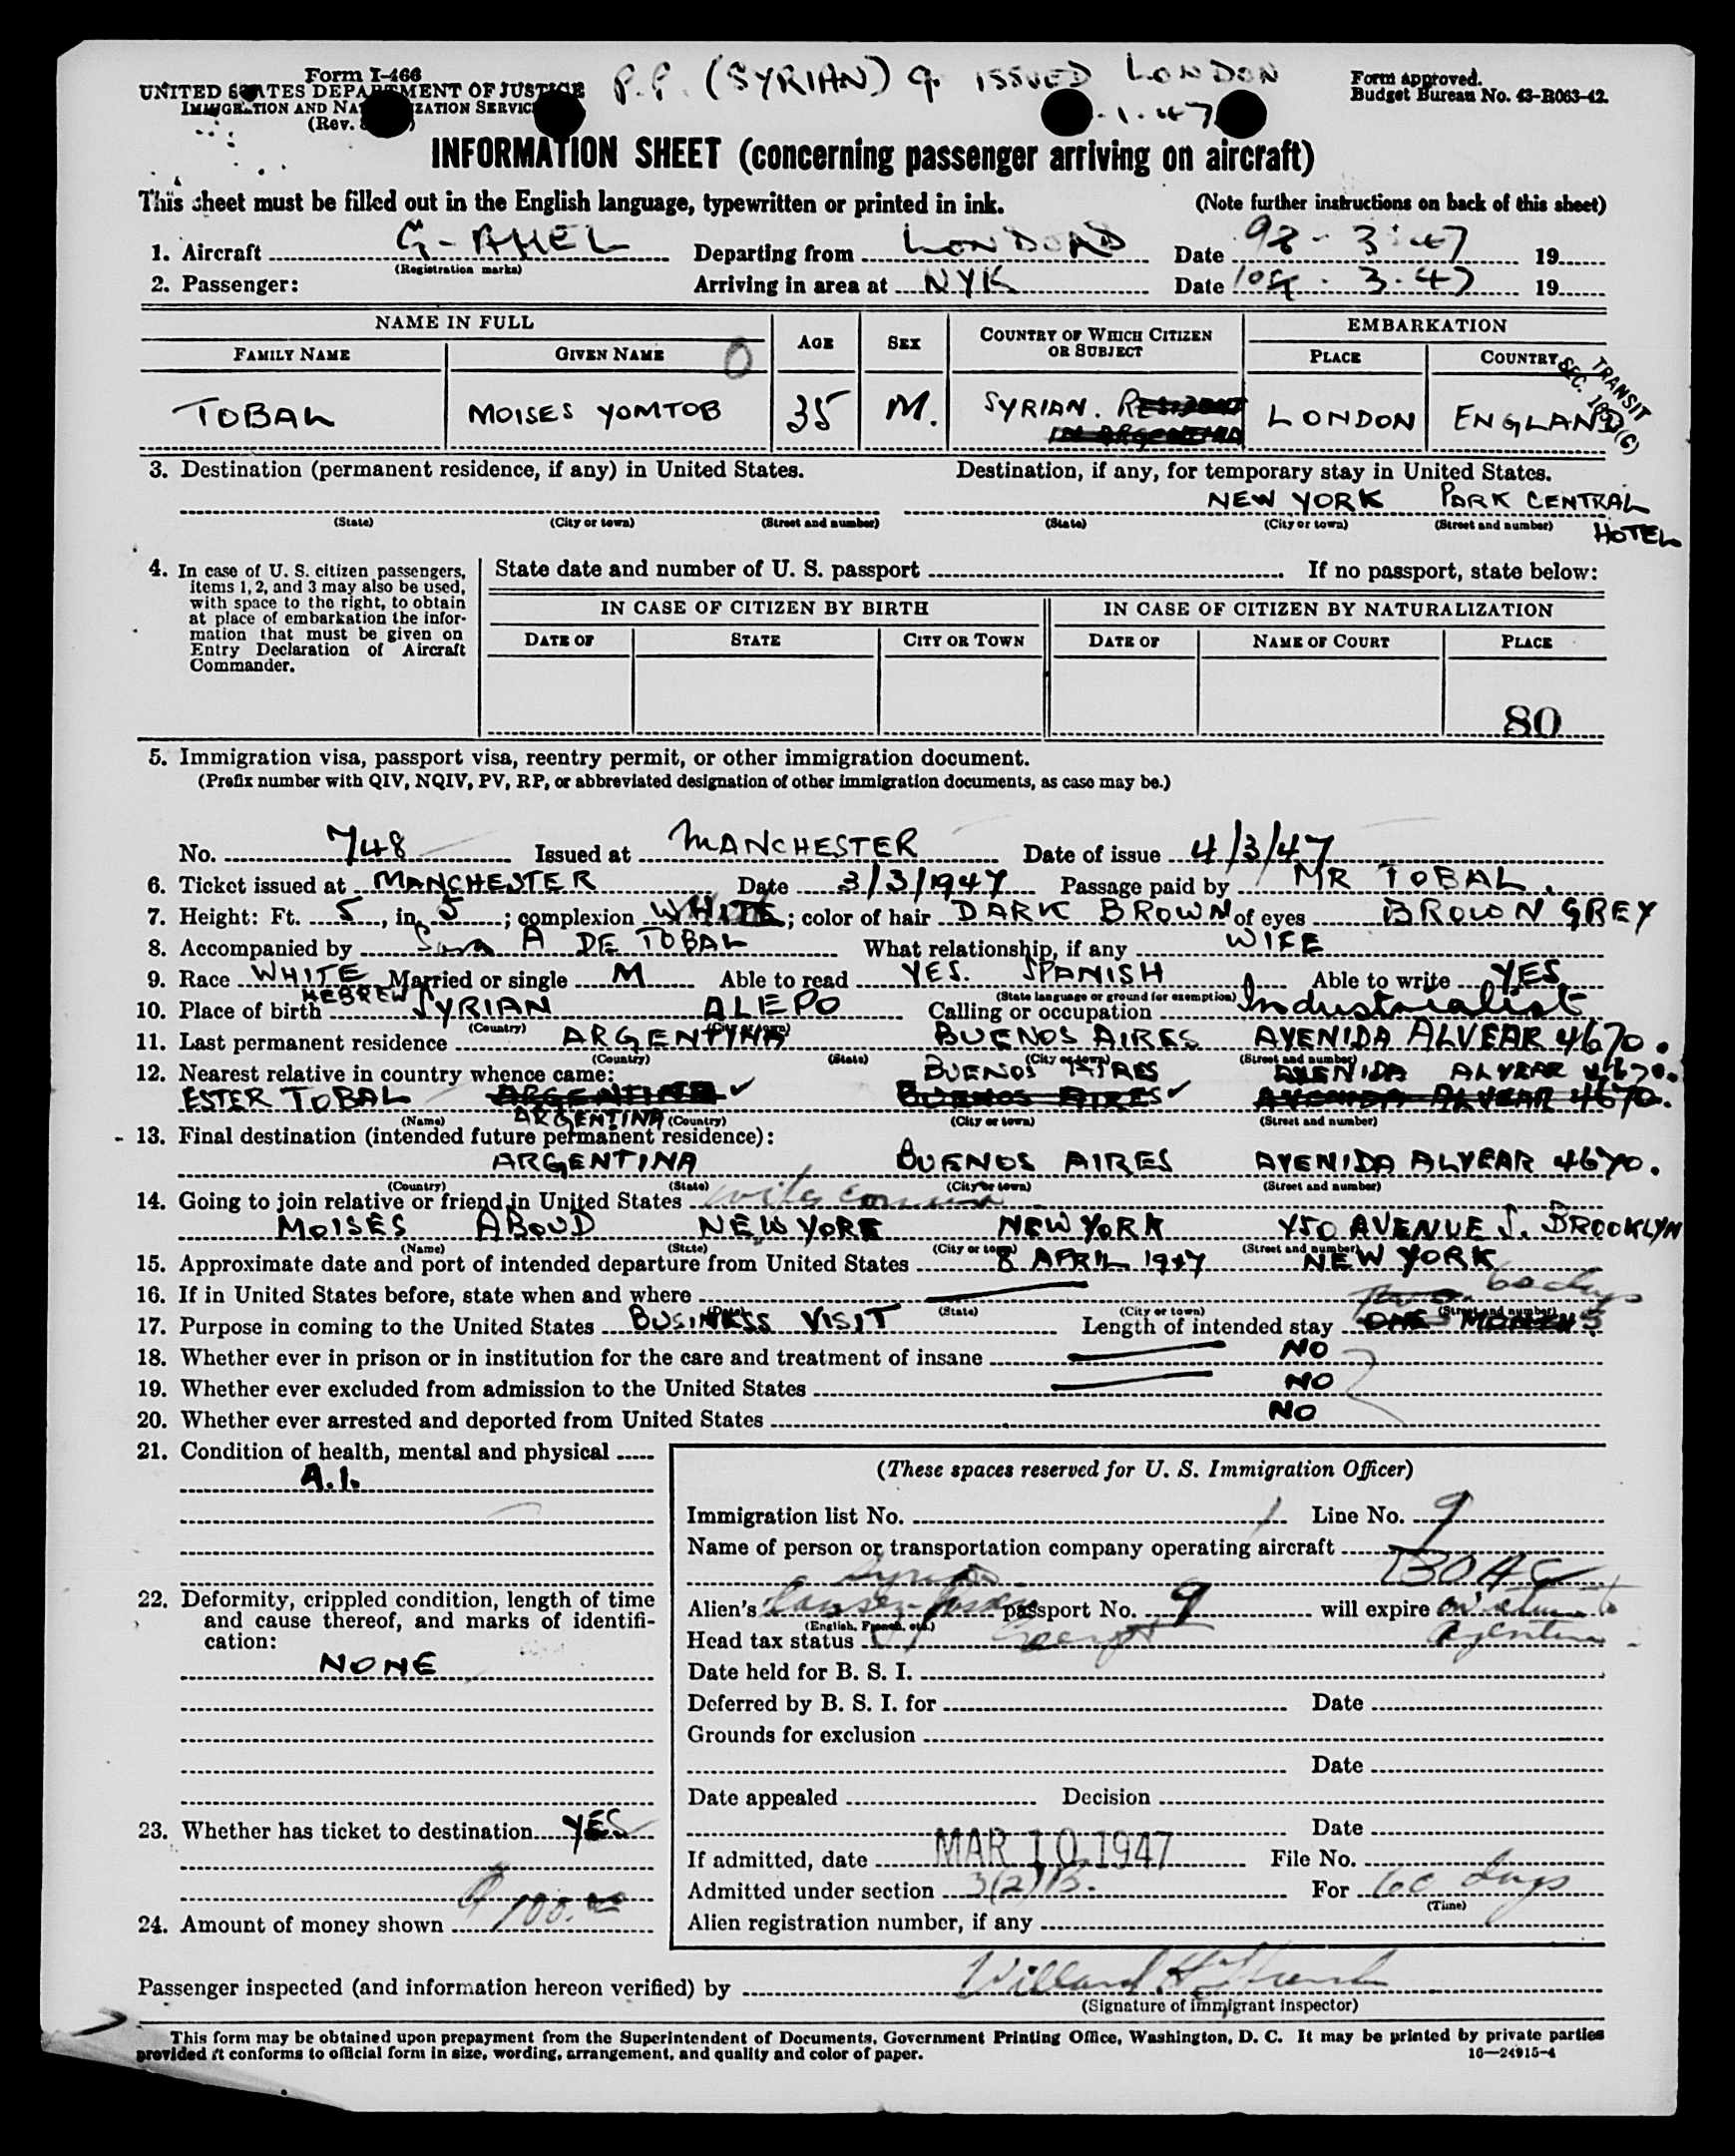 Form I-466
UNITED STATES DEPARTMENT OF JUSTICE
IMMIGRATION AND NATURALIZATION SERVICE
(Rev.
P.P. (SYRIAN) 9. ISSUED LONDON
.1.47
Form approved.
Budget Bureau No. 43-R063-42.
INFORMATION SHEET (concerning passenger arriving on aircraft)
This sheet must be filled out in the English language, typewritten or printed in ink. (Note further instructions on back of this sheet)
1. Aircraft G-AHEL Departing from LONDON Date 3.47 19
(Registration marks)
2. Passenger: Arriving in area at NYK Date 3.47 19
NAME IN FULL AGE SEX COUNTRY OF WHICH CITIZEN OR SUBJECT EMBARKATION
FAMILY NAME GIVEN NAME PLACE COUNTRY
TRANSIT
TOBAL MOISES YOMTOB 35 M. SYRIAN. RESIDENT LONDON ENGLAND
IN ARGENTINA
3. Destination (permanent residence, if any) in United States. Destination, if any, for temporary stay in United States.
NEW YORK PARK CENTRAL
(State) (City or town) (Street and number) (State) (City or town) (Street and number) HOTEL
4. In case of U. S. citizen passengers, items 1, 2, and 3 may also be used, with space to the right, to obtain at place of embarkation the information that must be given on Entry Declaration of Aircraft Commander.
State date and number of U. S. passport If no passport, state below:
IN CASE OF CITIZEN BY BIRTH IN CASE OF CITIZEN BY NATURALIZATION
DATE OF STATE CITY OR TOWN DATE OF NAME OF COURT PLACE
80
5. Immigration visa, passport visa, reentry permit, or other immigration document.
(Prefix number with QIV, NQIV, PV, RP, or abbreviated designation of other immigration documents, as case may be.)
No. 748 Issued at MANCHESTER Date of issue 4/3/47
6. Ticket issued at MANCHESTER Date 3/3/1947 Passage paid by MR TOBAL.
7. Height: Ft. 5, in. 5; complexion WHITE; color of hair DARK BROWN of eyes BROWN GREY
8. Accompanied by Sara A DE TOBAL What relationship, if any WIFE
9. Race WHITE Married or single M Able to read YES. SPANISH Able to write YES
HEBREW (State language or ground for exemption)
10. Place of birth SYRIAN ALEPO Calling or occupation Industrialist
(Country) (City or town)
11. Last permanent residence ARGENTINA BUENOS AIRES AVENIDA ALVEAR 4670.
(Country) (State) (City or town) (Street and number)
12. Nearest relative in country whence came: BUENOS AIRES AVENIDA ALVEAR 4670.
ESTER TOBAL ARGENTINA BUENOS AIRES AVENIDA ALVEAR 4670.
(Name) ARGENTINA (Country) (City or town) (Street and number)
13. Final destination (intended future permanent residence):
ARGENTINA BUENOS AIRES AVENIDA ALVEAR 4670.
(Country) (State) (City or town) (Street and number)
14. Going to join relative or friend in United States wife's cousin
MOISES ABOUD NEW YORK NEW YORK 450 AVENUE J. BROOKLYN
(Name) (State) (City or town) (Street and number)
15. Approximate date and port of intended departure from United States 8 APRIL 1947 NEW YORK
16. If in United States before, state when and where 60 days
(Date) (State) (City or town) (Street and number)
17. Purpose in coming to the United States BUSINESS VISIT Length of intended stay ONE MONTH
18. Whether ever in prison or in institution for the care and treatment of insane NO
19. Whether ever excluded from admission to the United States NO
20. Whether ever arrested and deported from United States NO
21. Condition of health, mental and physical
A.1.
22. Deformity, crippled condition, length of time and cause thereof, and marks of identification:
NONE
23. Whether has ticket to destination YES
24. Amount of money shown $100.00
(These spaces reserved for U. S. Immigration Officer)
Immigration list No. 1 Line No. 9
Name of person or transportation company operating aircraft
BOAC
Alien's passport No. 9 will expire on return to
(English, French, etc.)
Head tax status Exempt Argentina
Date held for B. S. I.
Deferred by B. S. I. for Date
Grounds for exclusion
Date
Date appealed Decision
Date
If admitted, date MAR 10 1947 File No.
Admitted under section 3(2)B. For 60 days
(Time)
Alien registration number, if any
Passenger inspected (and information hereon verified) by Willard H.
(Signature of immigrant inspector)
This form may be obtained upon prepayment from the Superintendent of Documents, Government Printing Office, Washington, D. C. It may be printed by private parties
provided it conforms to official form in size, wording, arrangement, and quality and color of paper. 16—24915-4